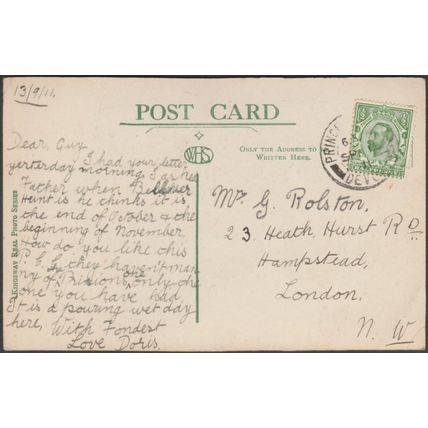 13/9/11.
POST CARD
WHS
ONLY THE ADDRESS TO
BE WRITTEN HERE.
PRINCE
DEVON
KINGSWAY REAL PHOTO SERIES
Dear Guy
I had your letter
yesterday morning I
Father when
Hunt is he thinks it is
the end of October & the
beginning of November.
How do you like this
P.C. they havent man
y of only the
one you have had
It is a pouring wet day
here, With Fondest
Love Doris.
Mr G. Rolston,
23, Heath Hurst RD
Hampstead,
London.
N. W